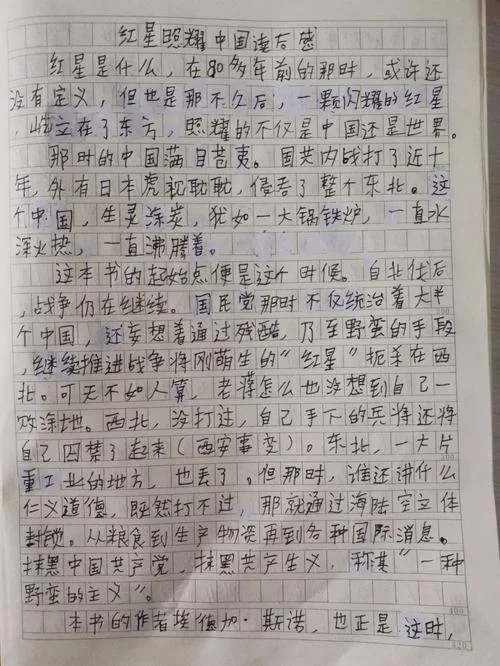 红星照耀中国读后感
红星是什么，在80多年前的那时，或许还
没有定义，但也是那不久后，一颗闪耀的红星
，屹立在了东方，照耀的不仅是中国还是世界。
那时的中国满目苍夷。国共内战打了近十
年，外有日本虎视耽耽，侵吞了整个东北。这
个中国，生灵涂炭，犹如一大锅铁炉，一直水
深火热，一直沸腾着。
这本书的起始点便是这个时候。自北伐后
，战争仍在继续。国民党那时不仅统治着大半
个中国，还妄想着通过残酷，乃至野蛮的手段
，继续推进战争将刚萌生的“红星”扼杀在西
北。可天不如人算，老蒋怎么也没想到自己一
败涂地。西北，没打过，自己手下的兵将还将
自己囚禁了起来（西安事变）。东北，一大片
重工业的地方，也丢了。但那时，谁还讲什么
仁义道德，既然打不过，那就通过海陆空立体
封锁。从粮食到生产物资再到各种国际消息。
抹黑中国共产党，抹黑共产主义，称其“一种
野蛮的主义”。
本书的作者埃德加·斯诺，也正是这时，
200
300
400
420